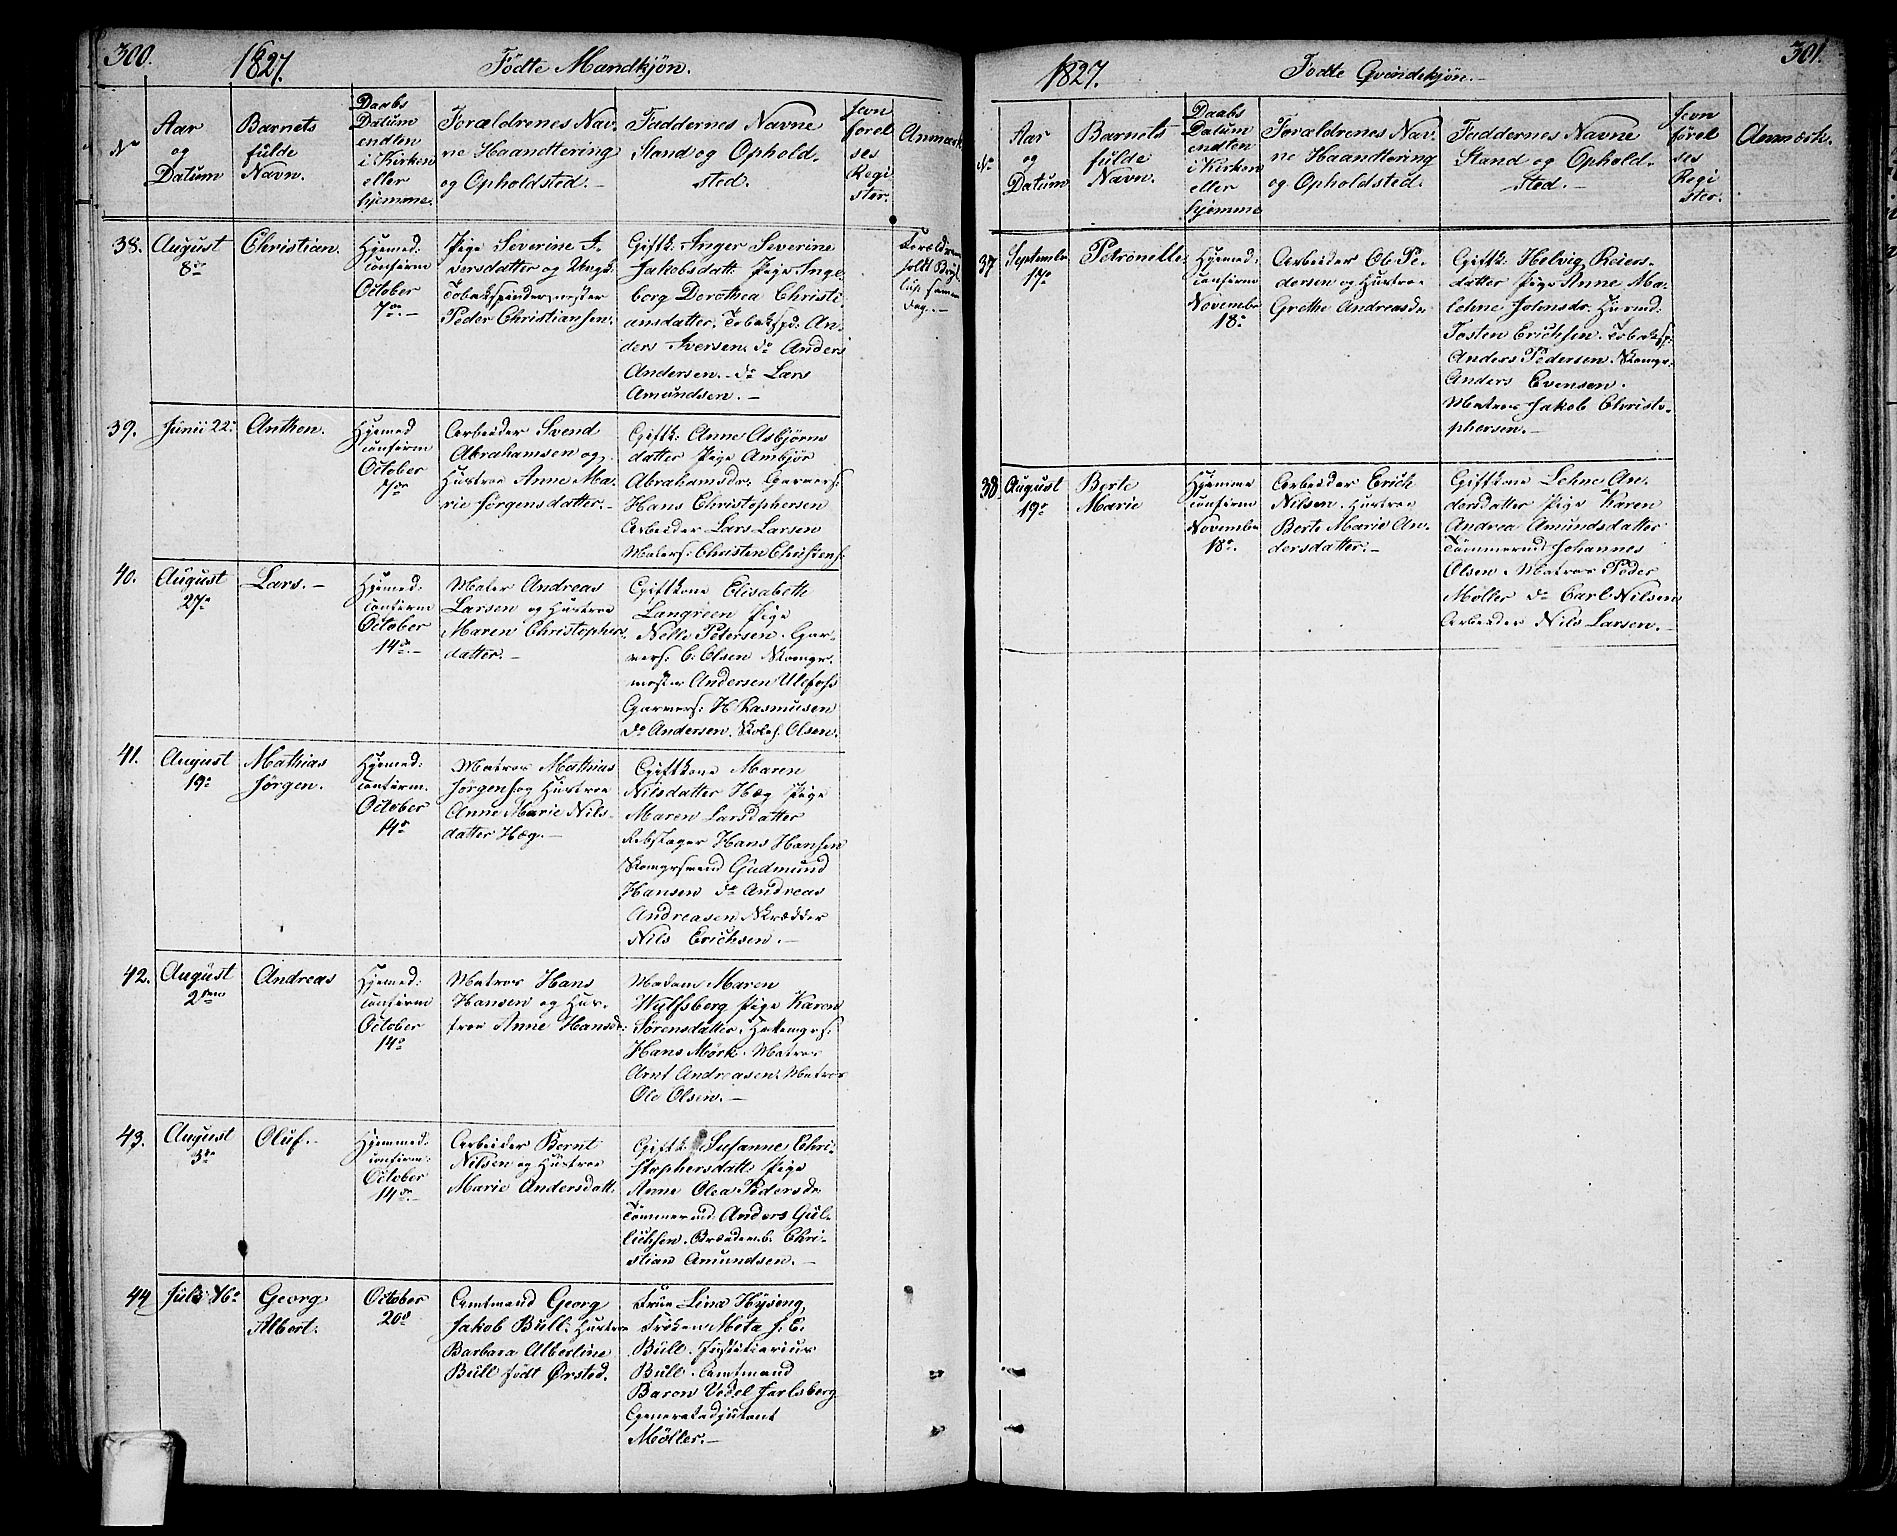 300.
1827.
Födte Mandkjön.
No
Aar
og
Datum
Barnets
fulde
Navn.
Daabs
Datum
endten
i Kirken
eller
hjemme.
Forældrenes Nav-
ne Haandtering
og Opholdsted.-
Faddernes Navne
Stand og Ophold-
sted.
Jevn
förel
ses
Regi
ster.
Anmærk
38.
August
8de
Christian.
Hjemed:
confirm
October
7de.-
Pige Severine I-
versdatter og Ungk.
Tobakspindermester
Peder Christiansen.
Giftk: Inger Severine
Jakobsdatt: Pige Inge-
borg Dorothea Christi-
ansdatter. Tobakspd. An-
ders Iversen. do Anders
Andersen.- do Lars
Amundsen.-
Forældrene
holdt Bryl-
lup samme
Dag.-
39.
Junii 22:
Anthon.
Hjemed
confirm
October
7de
Arbeider Svend
Abrahamsen og
Hustroe Anne Ma-
rie Jörgensdatter.-
Giftk: Anne Asbjörns
datter Pige Ambjör
Abrahamsdr. Garvers:
Hans Christophersen
Arbeider Lars Larsen
Matros: Christen Christens:
40.
August
27de
Lars.-
Hjemed:
confirm
October
14de.-
Maler Andreas
Larsen og Hustroe
Maren Christophers-
datter.-
Giftkone Elisabeth
Langreen Pige
Nelle Petersen. Gar-
vers: C: Olsen Skomgr.
mester Andersen Ulefoss
Garvers: H Rasmusen
do Andersen. Olsen.
41.
August
19de
Mathias
Jörgen.
Hjemed:
confirm.
October
14de
Matros Mathias
Jörgens og Hustroe
Anne Marie Nils-
datter Hæg.-
Giftkone Maren
Nilsdatter Hæg Pige
Maren Larsdatter
Rebslager Hans Hansen
Skomgrsvend Gudmund
Hansen do Andreas
Andreasen Skrædder
Nils Erichsen.-
42.
August
2den
Andreas
Hjemed:
confirm
October
14de
Matros Hans
Hansen og Hus-
troe Anne Hansdr:
Madam Maren
Wulfsberg Pige Karen
Sörensdatter.
Hans Mörk. Matros
Arnt Andreasen. Matros
Ole Olsen.-
43.
August
3de
Oluf.-
Hjemmed:
confirm:
October
14de.-
Arbeider Bernt
Nilsen og Hustroe
Marie Andersdatt.
Giftk: Susanne Chri-
stophersdatt: Pige
Anne Olea Pedersdr
Tömmermd: Anders Gul-
lichsen. Brændevb. Chri-
stian Amundsen.-
44
Julii 16de
Georg
Albert.
October
20de
Amtmand Georg
Jakob Bull. Hustroe
Barbara Albertine
Bull födt Örsted.
Frue Lina Hyseng,
Fröken Meta J. C.
Bull. Justitiarius
Bull. Amtmand
Baron Vedel Jarlsberg
Generaladjutant
Möller.-
1827.
Födte Qvindekjön.-
301.
No
Aar
og
Datum
Barnets
fulde
Navn.
Daabs
Datum
endten
i Kirken
eller
hjemme
Forældrenes Nav-
ne Haandtering
og Opholdsted.
Faddernes Navne
Stand og Ophold-
sted.-
Jevn
förel
ses
Regi
ster.
Anmærk.
37
September
17de
Petronelle
Hjemed:
confirm
November
18de
Arbeider Ole Pe-
dersen og Hustroe
Grethe Andreasdr
Giftk. Helvig Reiers-
datter Pige Anne Ma-
lehne Johnsdr.
Tosten Erichsen. Tobaksp:
Anders Pedersen. Skomgr:
Anders Evensen.
Matros Jakob Christo-
phersen.-
38
August
19de
Berte
Marie
Hjemme
confirm
November
18de.
Arbeider Erich
Nilsen. Hustroe
Berte Marie An-
dersdatter.-
Giftkone Lehne An-
dersdatter Pige Karen
Andrea Amundsdatter
Tömmermd Johannes
Olsen Matros Peder
Moller do Carl Nilsen
Arbeider Nils Larsen.-